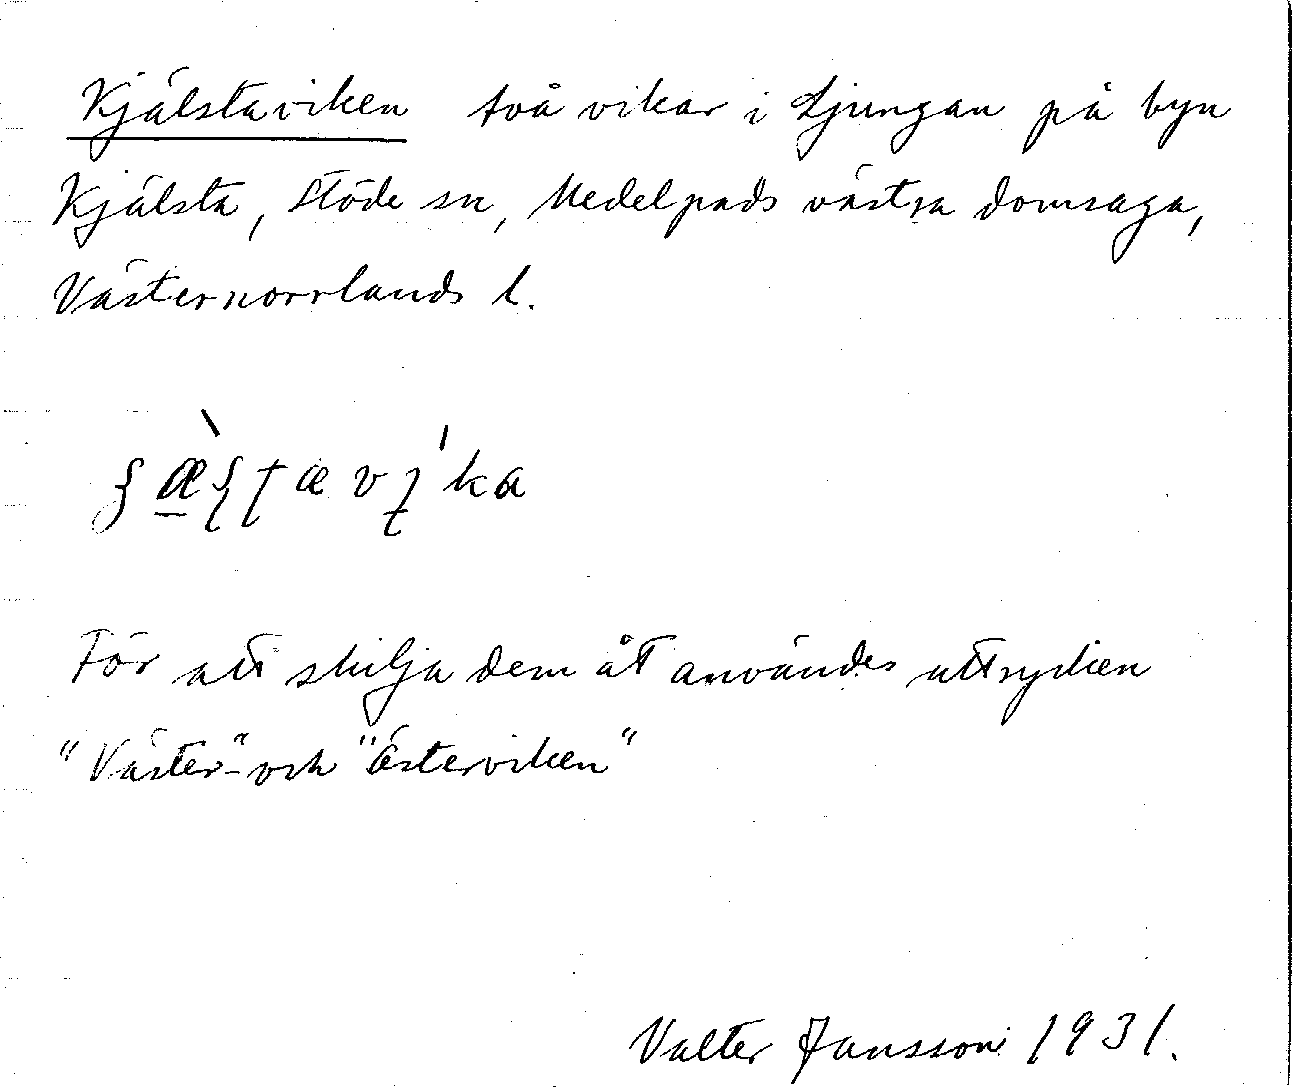 Kjälstaviken två vikar i Ljungan på byn
Kjälsta, Stöde sn, Medelpads västra domsaga,
Västernorrlands l.
För att skilja dem åt användes uttrycken
"Väster-" och "Österviken"
Valter Jansson 1931.